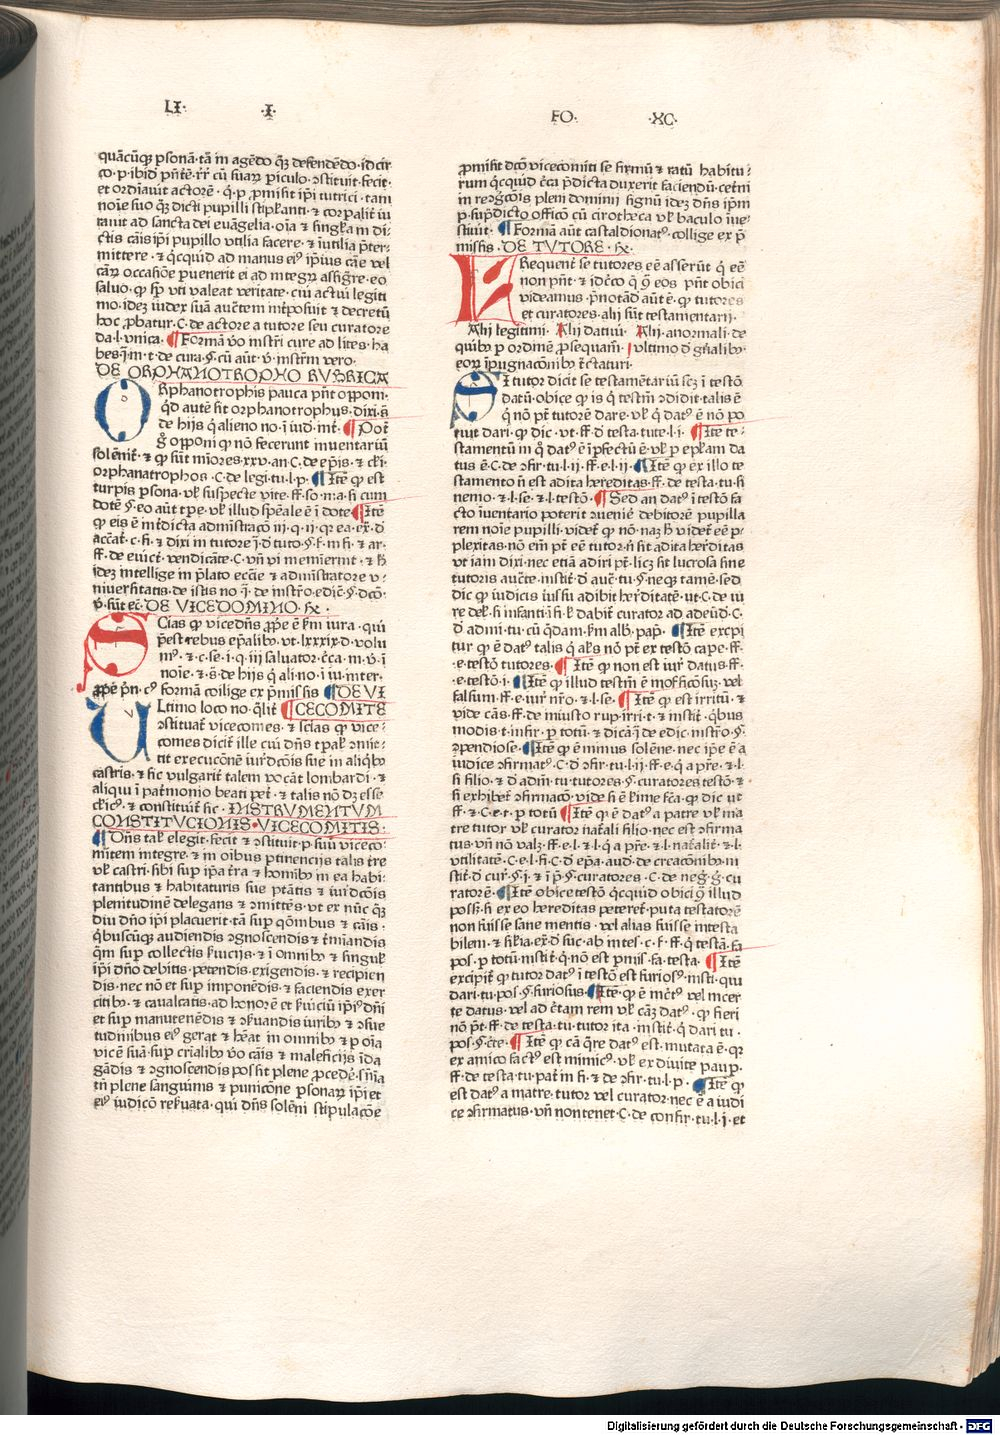 LI· ·I·
FO· ·XC·
quācūqꝫ ꝑsonā·tā in agēdo qꝫ defendēdo·idcir
co·ꝑ·ibid pn̄tē·rr̄ cū suaꝝ ꝑiculo·ɔstituit·fecit·
et ordīauit actorē·q·ꝑ·ꝓmisit ip̄i tutrici·tam
noīe suo qꝫ dicti pupilli
rauit ad sancta dei euāgelia·oīa ⁊ singl̄a in di
ctis cāis ip̄i pupillo vtilia facere·⁊ īutilia p̄ter·
mittere·⁊ q̇cquid ad manus eiꝰ ip̄ius cāe vel
caꝝ occasiōe ꝑuenerit ei ad integꝝ assigr̄e·eo
saluo·ꝙ sꝑ vti valeat veritate·cui actui legiti
mo·ideꝫ iudex suā auctem̄ int̄posuit ⁊ decretū
hoc ꝓbatur·C·de actore a tutore seu curatore
da·l·vnica·¶Formā v̄o instri cure ad lites·ha
bes·ī·in·t·de cura·§·cū aūt·v̄·instrm̄ vero·
DE ORPHANOTROPHO RVBRICA
ORphanotrophis pauca pn̄t opponi·
q̇d autē sit orphanotrophus·dixi·s̄
de hijs q̇ alieno no·ī iud·int̄·¶Pot̄
opponi ꝙ nō fecerunt inuentariū
solēnit̄·⁊ ꝙ sūt mīores·xxv·an·C·de ep̄is·⁊ cl̄i·
orphanatrophos·C·de legi·tu·l·ꝑ·¶Itē ꝙ est
turpis ꝑsona·vl̄ suspecte vite·ff·so·ma·si cum
dotē·§·eo aūt tꝑe·vl̄ illud spēale ē ī dote¶Itē
ꝙ eis ē int̄dicta admīstraco
accat̄·c·fi·⁊ dixi in tutore
ff·de euict̄·vendicātē·C·vn̄ vi meminerint·⁊ h̄
ideꝫ intellige in p̄lato ecc̄ie ⁊ admīstratore v·
niuersitatis·de istis no·ī·de instr̄o·edic̄·§·dc̄o·
v̄·sūt ec̄·DE VICEDOMINO·rx̄·
SCias ꝙ vicedn̄s ꝓpe ē
p̄est rebus ep̄alibꝰ·vt·lxxxix·d·volu
mꝰ·⁊·c·se·i·q·iij saluator·c̄ca·m·v̄·ī
noīe·⁊·s̄·de hijs q̇ ali·no·ī iu·inter·
formā collige ex p̄missis ¶DE VI
VLtimo loco no·q̄lit̄ ¶CECOMITE
ɔstituat̄ vicecomes·⁊ scias ꝙ vice·
comes dicit̄ ille cui dn̄s tꝑal̄
tit execucōnē iur̄dcōis sue in aliqbꝰ
castris·⁊ sic vulgarit̄ talem vocāt lombardi·⁊
aliqui ī pat̄monio beati pet̄·⁊ talis nō dꝫ esse
cl̄icꝰ·⁊ constituit̄ sic·INSTRVMENTVM
CONSTITVCIONIS·VICECOMITIS·
¶Dn̄s tal̄ elegit·fecit ⁊ ɔstituit·ꝑ suū viceco·
mītem integre·⁊ in oībus ꝑtinencijs talis tr̄e
vl̄ castri·sibi suꝑ ip̄a tr̄a ⁊ hoībus in ea habi·
tantibus ⁊ habitaturis sue ptātis ⁊ iur̄dcōis
plenitudinē delegans ⁊ ɔmittēs·vt ex nūc qꝫ
diu dn̄o ip̄i placuerit·tā suꝑ qōnibus ⁊ cāis·
q̇buscūqꝫ audiendis ɔgnoscendis ⁊ t̄miandis
q̄m suꝑ collectis ⁊ ī omnibꝰ ⁊ singul̄
ip̄i dn̄o debitis·petendis·exigendis·⁊ recipien
dis·nec nō et suꝑ imponēdis·⁊ faciendis exer
citibꝰ·⁊ caualcatis·ad honorē et ip̄iꝰ dn̄i
et suꝑ manutenēdis ⁊ ɔẜuandis iuribꝰ ⁊ ɔsue
tudinibus eiꝰ gerat ⁊ hēat in omnibꝰ ⁊ ꝑ oīa
vicē suā·suꝑ cr̄ialibꝰ v̄o cāis ⁊ maleficijs īda
gādis ⁊ ɔgnoscendis possit plene ꝓcedē·sn̄ia
tn̄ plene sanguinis ⁊ punicōne ꝑsonaꝝ ip̄i et
eiꝰ iudicō reẜuata·qui dn̄s solēni stipulacōe
ꝓmisit dc̄o vicecomiti se firmū ⁊ ratū habitu·
rum q̇cquid c̄ca p̄dicta duxerit faciendū·cet̄m
in pleni dominij signū ideꝫ dn̄s ip̄m
ꝑ·sup̄dicto officō cū cirotheca vl̄ baculo īue·
stiuit·¶Formā aūt castaldionatꝰ·collige ex p̄
missis·DE TVTORE·rx̄·
FRequent̄ se tutores eē asserūt q̇ eē
non pn̄t·⁊ idc̄o q̇ ꝯ eos pn̄t obici
videamus·p̄notād aūt ē·ꝙ tutores
et curatores·alij sūt testamentarij·
Alij legitimi·Alij datiui·Alij·anormali·de
quibꝰ ꝑ ordinē ꝓsequam̄·Iultimo d̄ gn̄alibꝰ·
eoꝝ īpugnacōnibꝰ tc̄taturi·
SI tutor dicit se testamētariū scꝫ ī testō
datū·obice ꝙ is q̇ testm̄ ɔdidit·talis ē
q̇ nō pt̄ tutorē dare·vl̄ q̇ datꝰ ē nō po
tuit dari·ꝙ dic·vt·ff·d̄ testa·tute·l·i·¶Itē te·
stamentū in q̇ datꝰ ē īꝑfectū ē·vl̄ ꝑ epl̄am da
tus ē·C·de ɔfir·tu·l·ii·ff·e·l·ii·¶Itē ꝙ ex illo te
stamento n̄ est adita hereditas·ff·de testa·tu·si
nemo·⁊·l·se·⁊·l·testō·¶Sed an datꝰ ī testō fa
cto īuentario poterit ɔuenīe debitorē pupilla
rem noīe pupilli·videt̄ ꝙ nō·naꝫ h̄ videt̄ eē ꝑ·
plexitas·nō eīm pt̄ eē tutor·n̄ sit adita her̄ditas
vt iam dixi·nec etiā adiri pt̄·licꝫ sit lucrosa sine
tutoris aucte·instit̄·d̄ auc̄·tu·§·neqꝫ tamē·sed
dic ꝙ iudicis iussu adibit her̄ditatē·vt·C·de iu
re del̄·si infanti·ī fi·l̄ dabit̄ curator ad adeūd·C·
d̄ admi·tu·cū q̇dam·s̄m alb̄·pap̄·¶Itē excpi
tur ꝙ ē datꝰ talis q̇ al̄s nō pt̄ ex testō cape·ff·
·e·testō tutores·¶Itē ꝙ non est iur̄ datus·ff·
·e·testō·i·¶Itē ꝙ illud testm̄ ē inofficōsū·vel
falsum·ff·e·iur̄·nr̄o·⁊·l·se·¶Itē ꝙ est irritū·⁊
vide cās·ff·de iniusto rup·irri·t·⁊ instit̄·q̇bus
modis·t·infir·ꝑ totū·⁊ dicā·ī·de edic·instr̄o·§·
ɔpendiose·¶Itē ꝙ ē minus solēne·nec ip̄e ē a
iudice ɔfirmatꝰ·C·d̄ ɔfir·tu·l·ij·ff·e·q̇ a pr̄e·⁊·l·
si filio·⁊ d̄ adm̄·tu·tutores·§·curatores testō·⁊
si exhibet̄ ɔfirmacō·vide si ē l̄ime fc̄a·ꝙ dic vt
ff·⁊·C·e·t·ꝑ totū ¶Itē ꝙ ē datꝰ a patre vl̄ ma
tre tutor vl̄ curator nat̄ali filio·nec est ɔfirma
tus·vn̄ nō valꝫ·ff·e·l·⁊·l·q̇ a pr̄e·⁊·l·nat̄alit̄·⁊·l·
vtilitatē·C·e·l·fi·C·d̄ ep̄a·aud·de creacōnibꝰ·in
stit̄·d̄ cur̄·§·i·⁊ ī p̄·§·curatores·C·de neḡ·ḡ·cu
ratorē·¶Itē obice testō q̇cquid obici ꝯ illud
possꝫ·si ex eo hereditas peteret̄·puta testatorē
non fuisse sane mentis·vel alias fuisse intesta
bilem·⁊ silia·ex·d̄ suc·ab intes·c·f·ff·q̇ testā·fa
pos·ꝑ totū·instit̄·q̇·nō est pmis·fa·testa·¶Itē
excipit̄ ꝙ tutor datꝰ ī testō est furiosꝰ·insti·qui
dari·tu·pos·§·furiosus·¶Itē·ꝙ ē inc̄tꝰ vel incer
te datus·vel ad c̄tam rem vl̄ cāꝫ datꝰ·ꝙ fieri
nō pt̄·ff·de testa·tu·tutor ita·instit̄·q̇ dari tu·
pos·§·c̄te·¶Itē ꝙ cā q̄re datꝰ est·mutata ē·qꝛ
ex amico factꝰ est inimicꝰ·vl̄ ex diuite pauꝑ·
ff·de testa·tu·pat̄ in fi·⁊ de ɔfir·tu·l·ꝑ·¶Itē ꝙ
est datꝰ a matre·tutor vel curator·nec ē a iudi
ce ɔfirmatus·vn̄ non tenet·C·de confir·tu·l·i·et
Digitalisierung gefördert durch die Deutsche Forschungsgemeinschaft - DFG